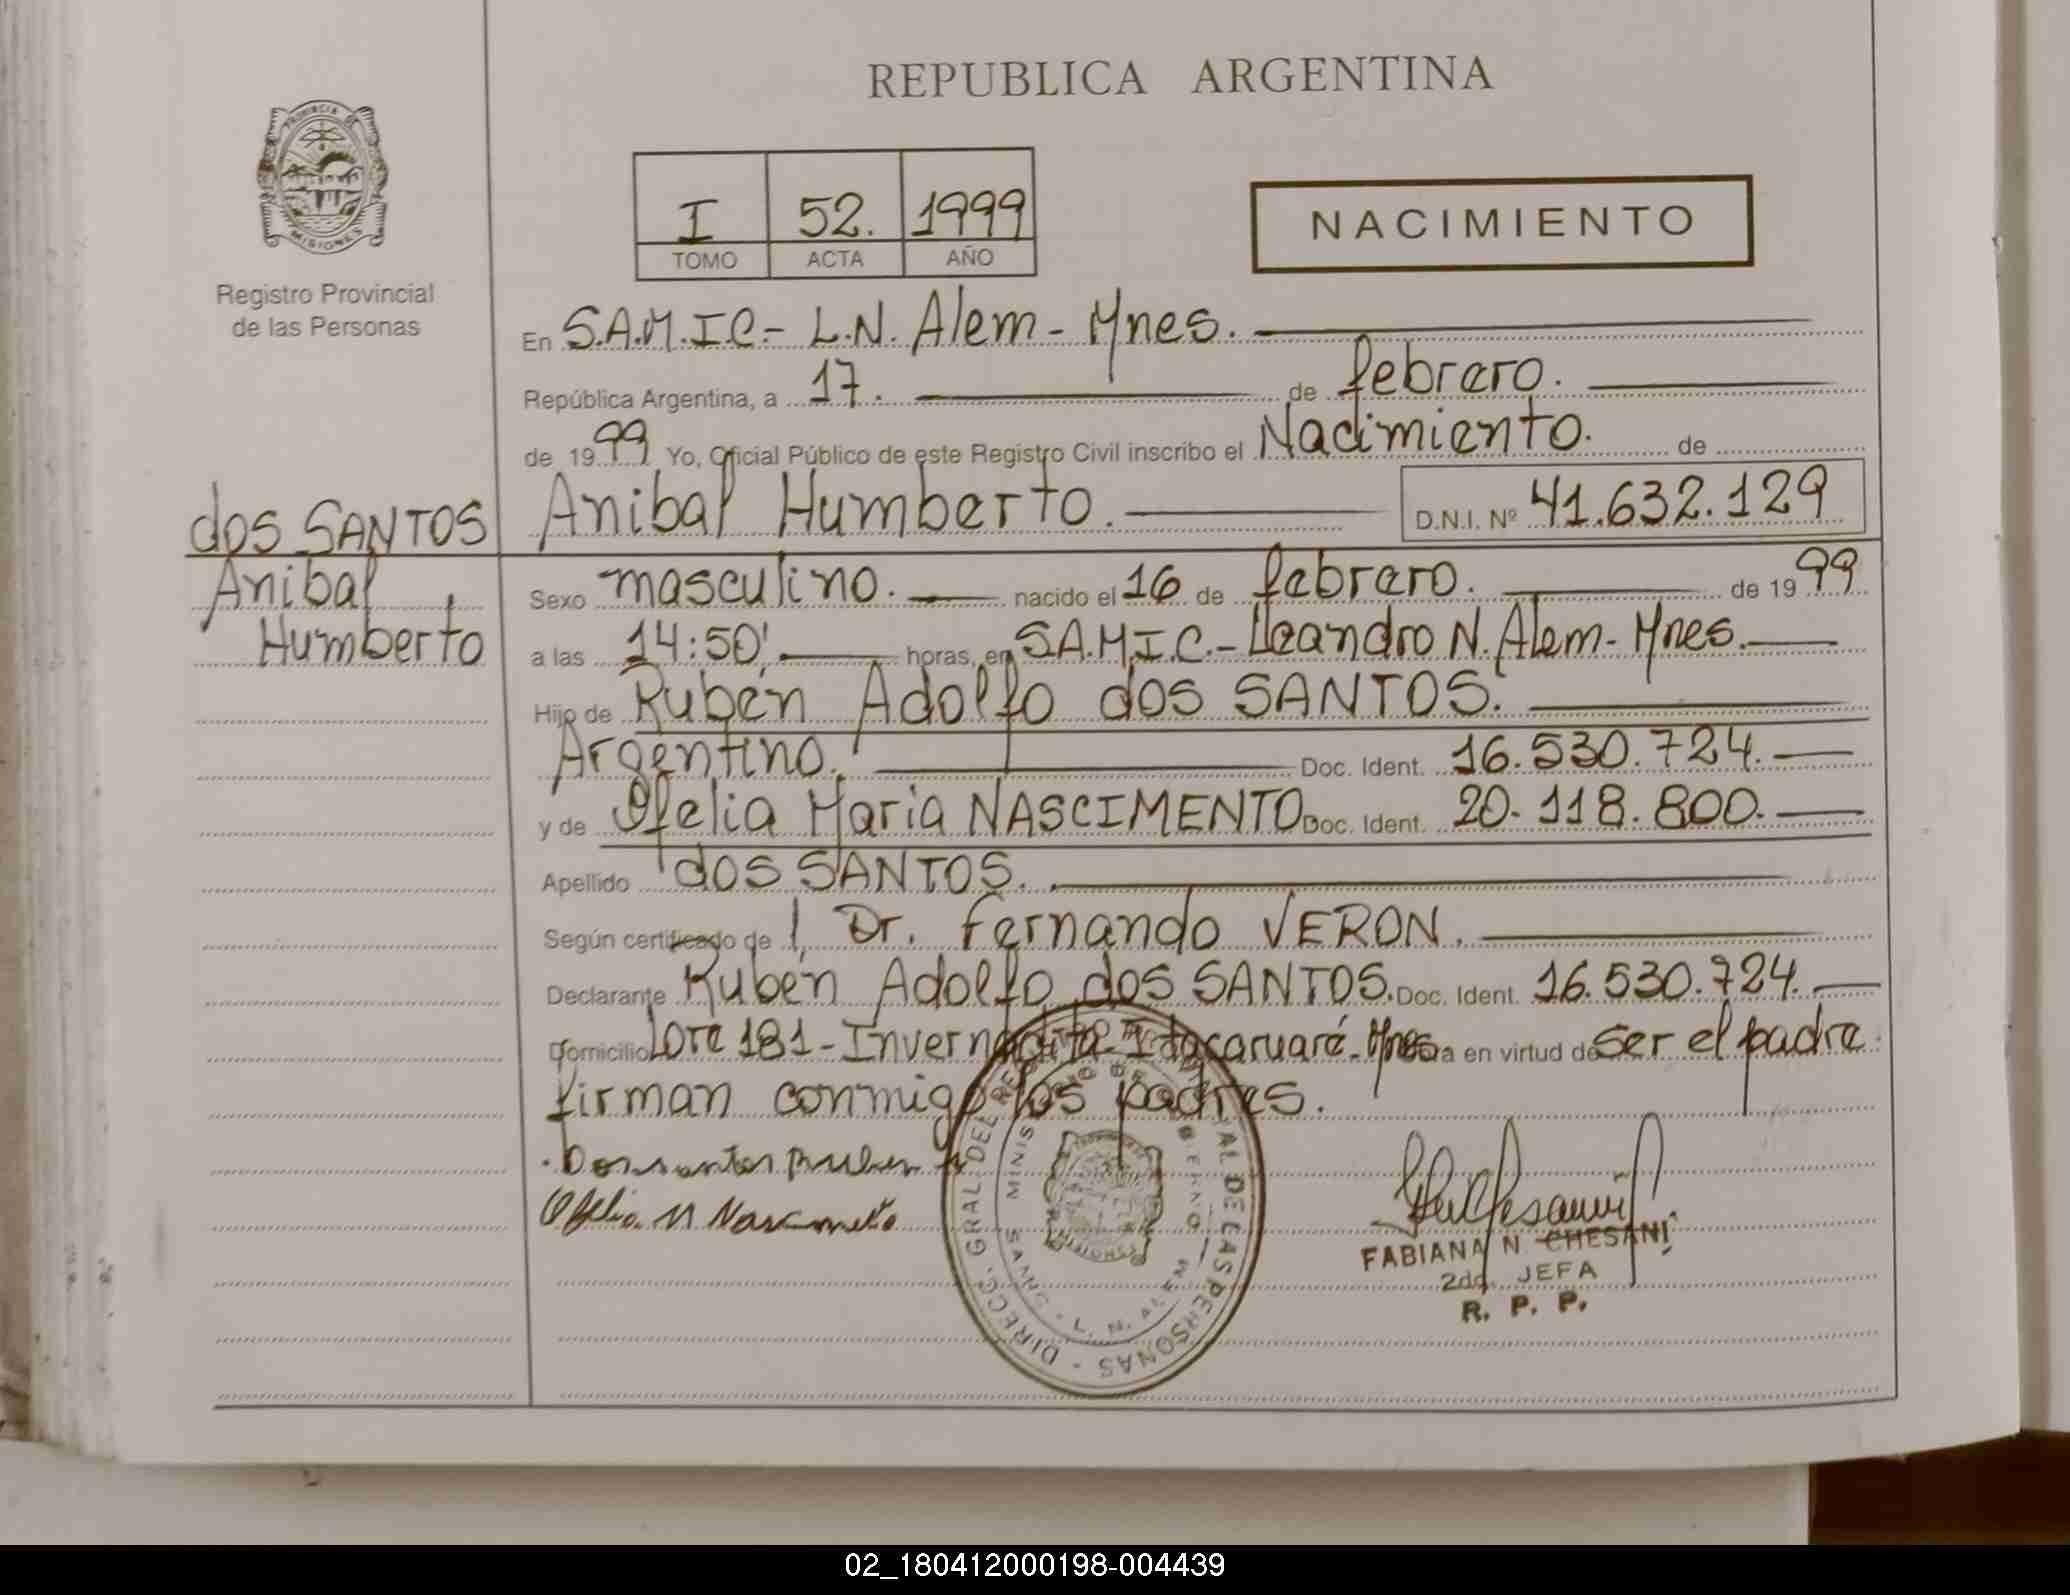 REPUBLICA ARGENTINA
PROVINCIA DE MISIONES
Registro Provincial
de las Personas
I 52. 1999
TOMO ACTA AÑO
NACIMIENTO
En S.A.M.I.C.- L.N. Alem - Mnes.
República Argentina, a 17. de febrero.
de 19 99 Yo, Oficial Público de este Registro Civil inscribo el Nacimiento. de
dos SANTOS Anibal Humberto. D.N.I. Nº 41.632.129
Anibal Sexo masculino. nacido el 16 de febrero. de 19 99
Humberto a las 14:50' horas, en S.A.M.I.C.- Leandro N. Alem - Mnes.
Hijo de Rubén Adolfo dos SANTOS.
Argentino. Doc. Ident. 16.530.724.
y de Ofelia Maria NASCIMENTO Doc. Ident. 20.118.800.
Apellido dos SANTOS.
Según certificado de Dr. Fernando VERON.
Declarante Rubén Adolfo dos SANTOS. Doc. Ident. 16.530.724.
Domicilio Lote 181 - Invernadita - Itacaruaré - Mnes. en virtud de ser el padre.
firman conmigo los padres.
Dos santos Ruben
Ofelia M Nascimento
DIRECC. GRAL. DEL DE LAS PERSONAS
L. N. ALEM
MISIONES
FABIANA N. CHESANI
2da. JEFA
R. P. P.
02_180412000198-004439